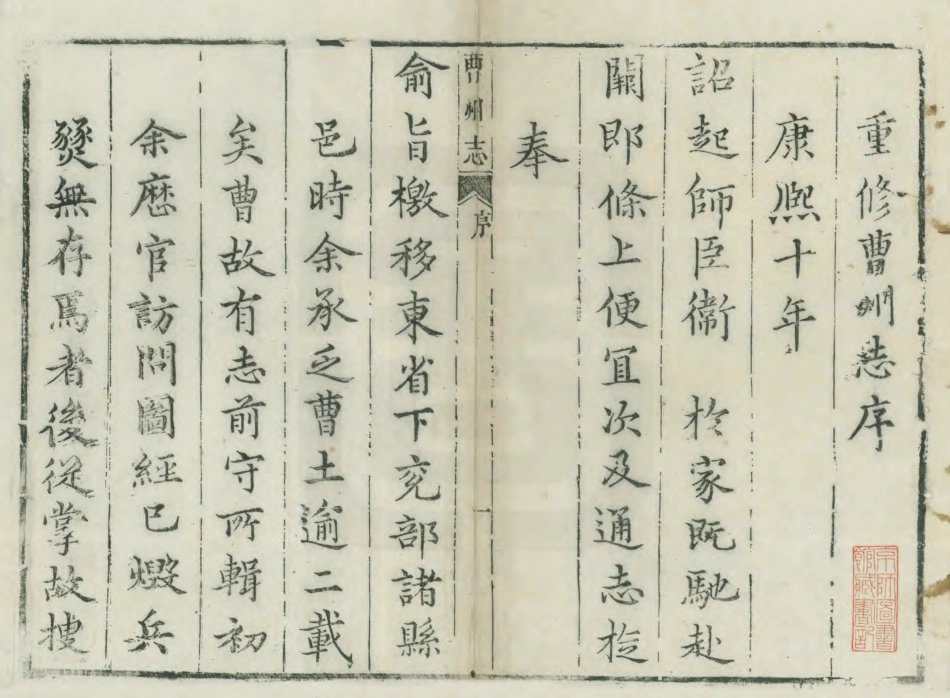 重修曹州志序
康熈十年
詔起師臣衞 於家既馳赴
闕即條上便冝次及通志於
奉
曹州志 序 一
俞旨檄移東省下兖部諸縣
邑時余承乏曹土逾二載
矣曹故有志前守所輯初
余歴官訪問圖經已燬兵
燹無存焉者後從掌故捜
京師圖書